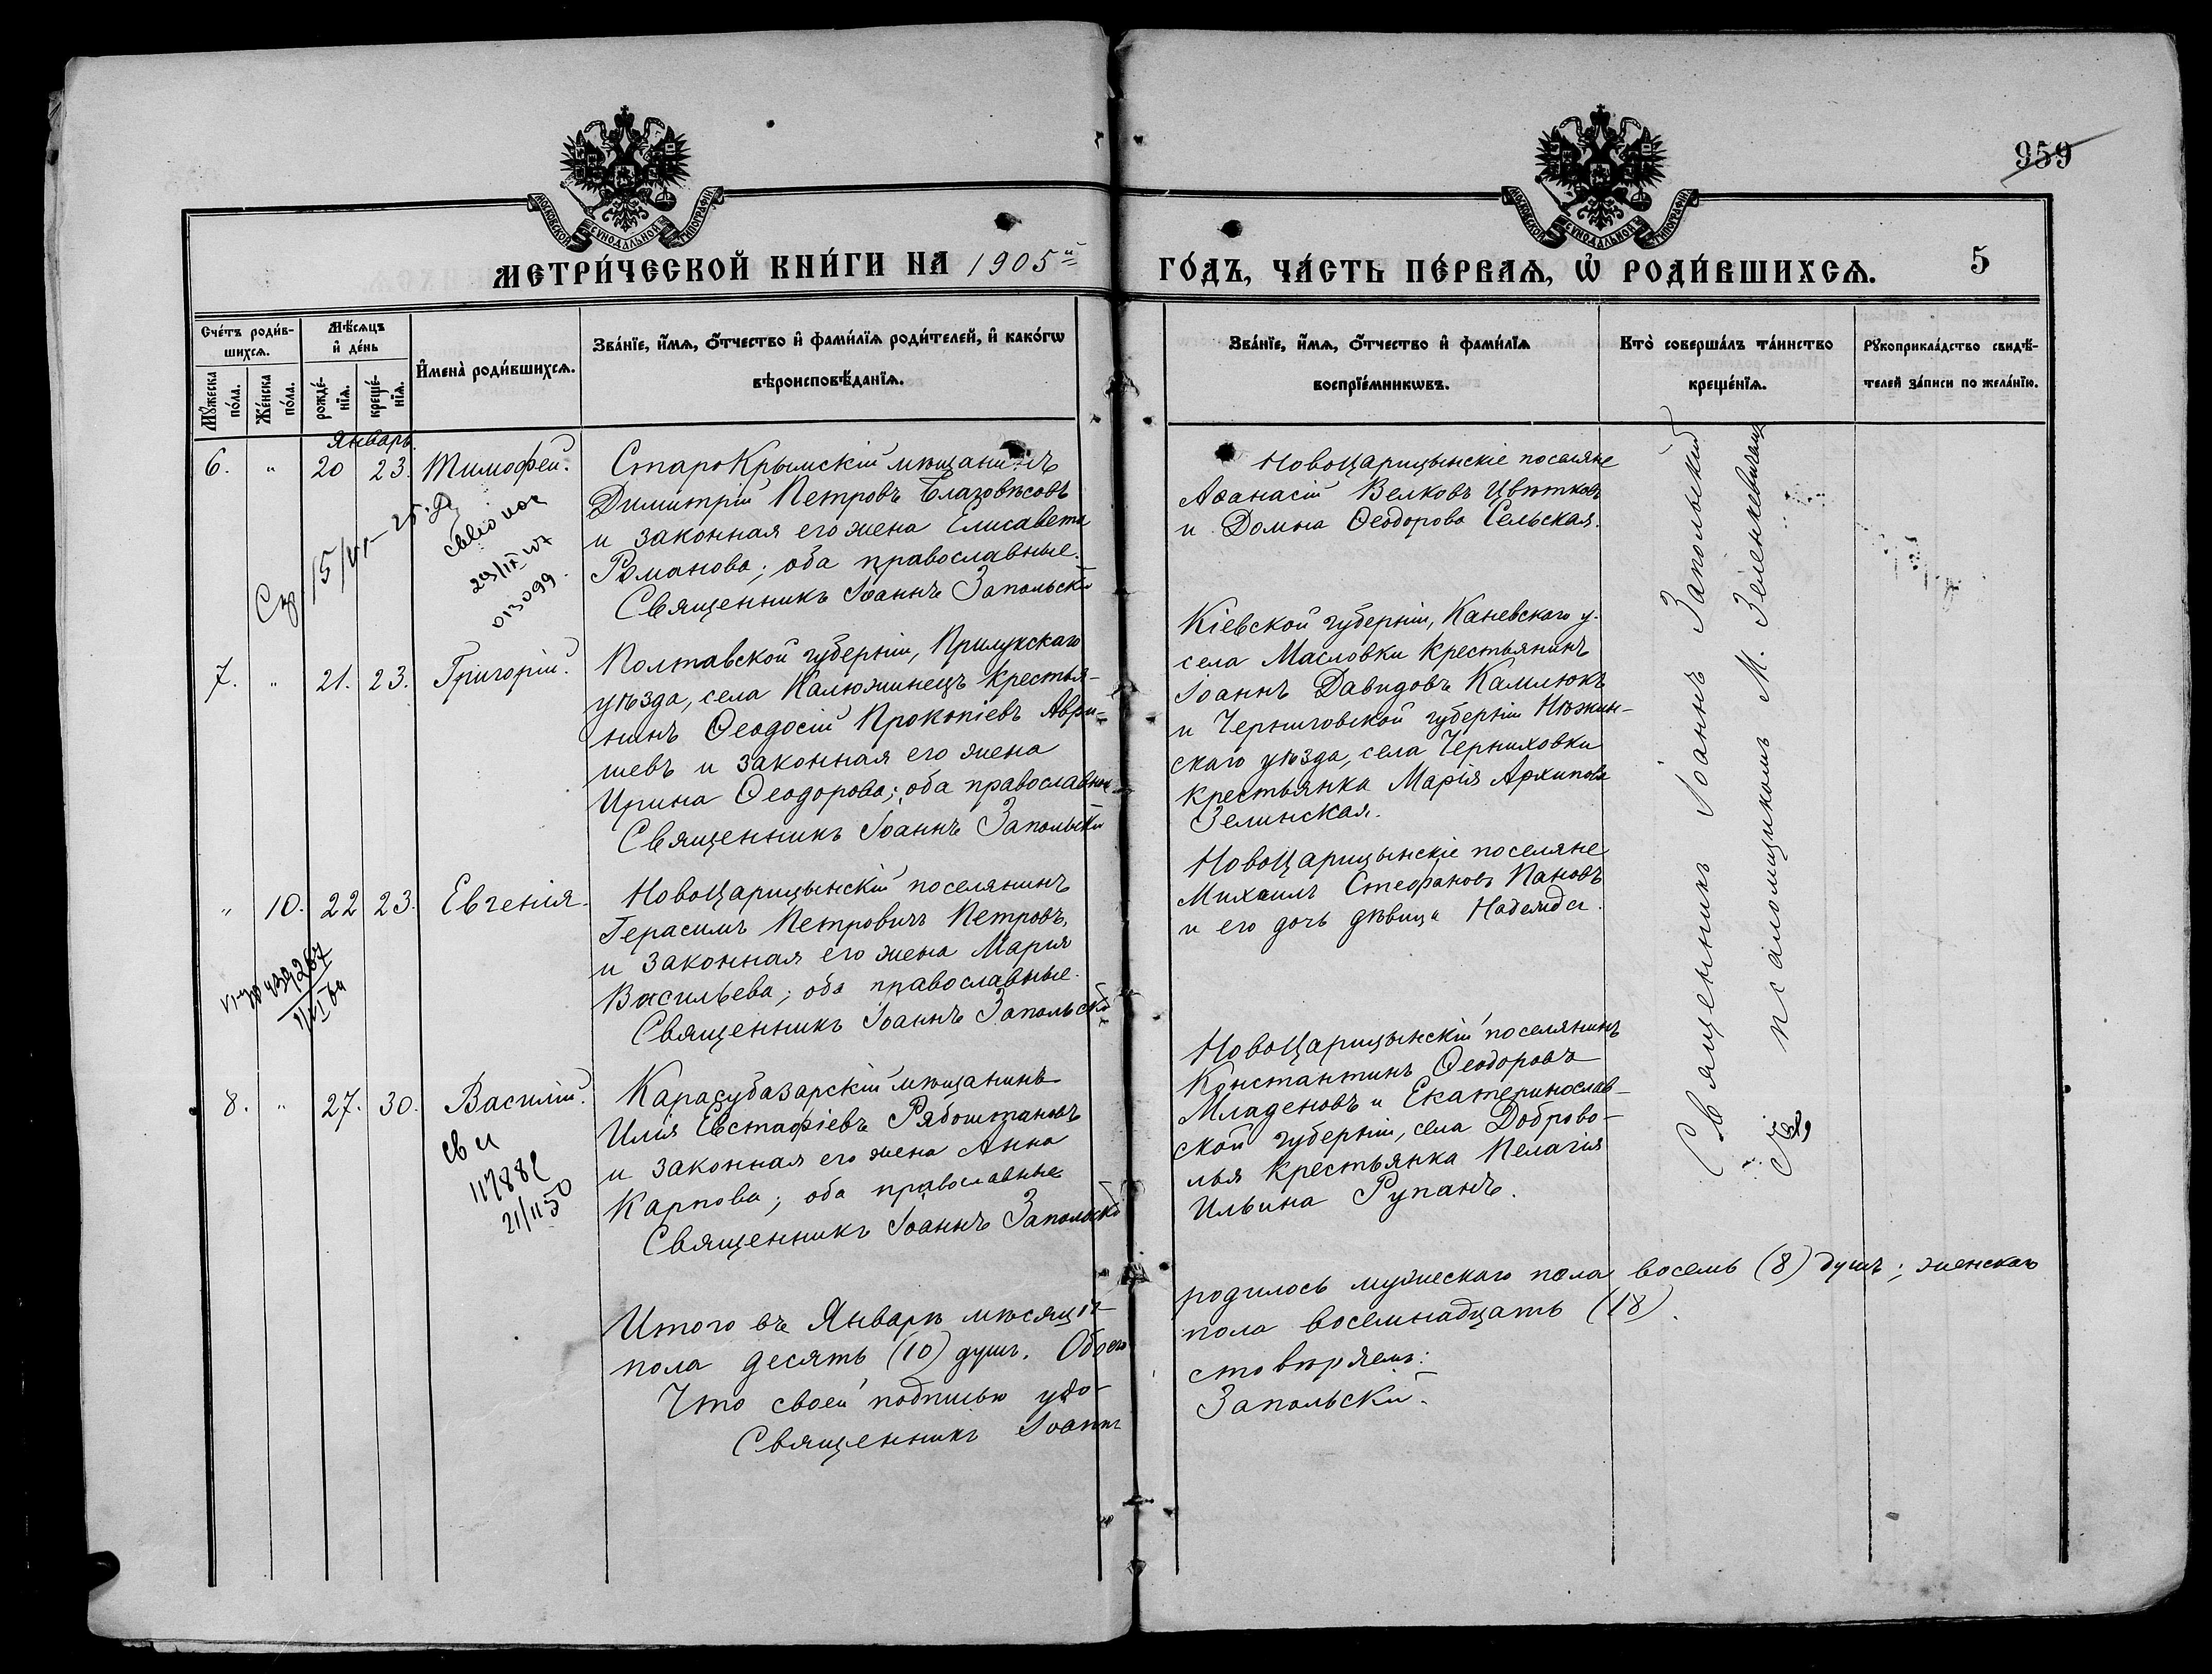 959
МОСКОВСКОЙ СѴНОДАЛЬНОЙ ТИПОГРАФІИ
МОСКОВСКОЙ СѴНОДАЛЬНОЙ ТИПОГРАФІИ
МЕТРИ́ЧЕСКОЙ КНИ́ГИ НА 1905й
ГО́ДЪ, ЧА́СТЬ ПЕ́РВАѦ, Ѡ҆ РОДИ́ВШИХСѦ.
5
Сче́тъ роди́в-
шихсѧ.
Мꙋ́жеска по́ла.
Же́нска по́ла.
Мѣ́сѧцъ и҆ де́нь
рожде́-нїѧ.
креще́-нїѧ.
И҆мена̀ роди́вшихсѧ.
Зва́нїе, и҆́мѧ, ѻ҆́тчество и҆ фами́лїѧ роди́телей, и҆ како́гѡ
вѣроисповѣ́данїѧ.
Зва́нїе, и҆́мѧ, ѻ҆́тчество и҆ фами́лїѧ
воспрїе́мникѡвъ.
Кто̀ соверша́лъ та́инство
креще́нїѧ.
Рꙋкоприкла́дство свидѣ́-
телей за́писи по жела́нїю.
Январь
6. " 20 23. Тимофей.
СтароКрымскій мѣщанинъ
Димитрій Петровъ Благовѣсовъ
и законная его жена Елисавета
Романова; оба православные.
Священникъ Іоаннъ Запольскій
НовоЦарицынскіе поселяне
Аѳанасій Велковъ Цвѣтковъ
и Домна Ѳеодорова Сельская.
013099.
7. " 21. 23. Григорій.
Полтавской губерніи, Прилукскаго
уѣзда, села Калюжинецъ крестья-
нинъ Ѳеодосій Прокопіевъ Аври-
шевъ и законная его жена
Ирина Ѳеодорова; оба православные
Священникъ Іоаннъ Запольскій
Кіевской губерніи, Каневскаго у.
села Масловки крестьянинъ
Іоаннъ Давидовъ Камлюкъ
и Черниговской губерніи Нѣжин-
скаго уѣзда, села Черняховки
крестьянка Марія Архипова
Зелинская.
" 10. 22 23. Евгенія.
НовоЦарицынскій поселянинъ
Герасимъ Петровичъ Петровъ,
и законная его жена Марія
Васильева; оба православные.
Священникъ Іоаннъ Запольскій
НовоЦарицынскіе поселяне
Михаилъ Стефановъ Пановъ
и его дочь дѣвица Надежда.
8. " 27. 30. Василій.
Карасубазарскій мѣщанинъ
Илія Евстафіевъ Рябоштановъ
и законная его жена Анна
Карпова; оба православные
Священникъ Іоаннъ Запольскій
НовоЦарицынскій поселянинъ
Константинъ Ѳеодоровъ
Младеновъ и Екатеринослав-
ской губерніи, села Доброво-
лья крестьянка Пелагія
Ильина Рупанъ.
св и
21/II 50
Священникъ Іоаннъ Запольскій
съ псаломщикомъ М. Зеленкевичемъ
Итого въ Январѣ мѣсяцѣ
родилось мужескаго пола восемь (8) душъ; женскаго
пола десять (10) душъ. Обоего
пола восемнадцать (18).
Что своей подписью удо-
стовѣряемъ:
Священникъ Іоаннъ
Запольскій.